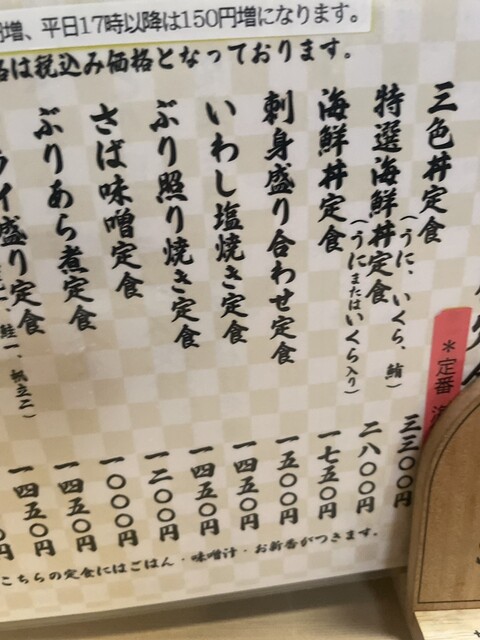 円増、平日17時以降は150円増になります。
は税込み価格となっております。
三色丼定食(うに、いくら、鮪) 三三〇〇円
特選海鮮丼定食(うにまたはいくら入り) 二八〇〇円
海鮮丼定食 一七五〇円
刺身盛り合わせ定食 一五〇〇円
いわし塩焼き定食 一四五〇円
ぶり照り焼き定食 一四五〇円
さば味噌定食 一二〇〇円
ぶりあら煮定食 一〇〇〇円
イ盛り定食 一四五〇円
鮭一、帆立二) 一四五〇円
円
こちらの定食にはごはん・味噌汁・お新香がつきます。
*定番